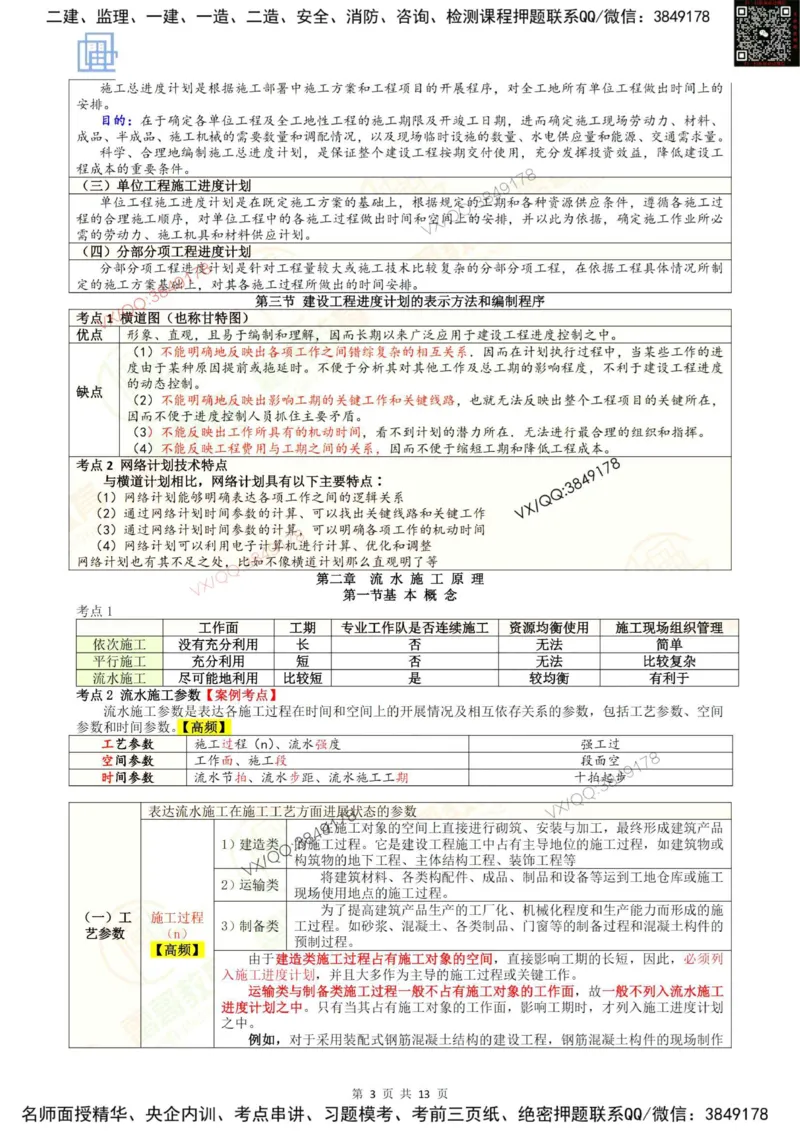 二建、监理、一建、一造、二造、安全、消防、咨询、检测课程押题联系QQ/微信：3849178
施工总进度计划是根据施工部署中施工方案和工程项目的开展程序，对全工地所有单位工程做出时间上的
安排。
目的：在于确定各单位工程及全工地性工程的施工期限及开竣工日期，进而确定施工现场劳动力、材料、
成品、半成品、施工机械的需要数量和调配情况，以及现场临时设施的数量、水电供应量和能源、交通需求量。
科学、合理地编制施工总进度计划，是保证整个建设工程按期交付使用，充分发挥投资效益，降低建设工
程成本的重要条件。
（三）单位工程施工进度计划
单位工程施工进度计划是在既定施工方案的基础上，根据规定的工期和各种资源供应条件，遵循各施工过
程的合理施工顺序，对单位工程中的各施工过程做出时间和空间上的安排，并以此为依据，确定施工作业所必
需的劳动力、施工机具和材料供应计划。
（四）分部分项工程进度计划
分部分项工程进度计划是针对工程量较大或施工技术比较复杂的分部分项工程，在依据工程具体情况所制
定的施工方案基础上，对其各施工过程所做出的时间安排。
第三节 建设工程进度计划的表示方法和编制程序
考点 1 横道图（也称甘特图）
优点 形象、直观，且易于编制和理解，因而长期以来广泛应用于建设工程进度控制之中。
缺点
（1）不能明确地反映出各项工作之间错综复杂的相互关系．因而在计划执行过程中，当某些工作的进
度由于某种原因提前或拖延时。不便于分析其对其他工作及总工期的影响程度，不利于建设工程进度
的动态控制。
（2）不能明确地反映出影响工期的关键工作和关键线路，也就无法反映出整个工程项目的关键所在，
因而不便于进度控制人员抓住主要矛盾。
（3）不能反映出工作所具有的机动时间，看不到计划的潜力所在．无法进行最合理的组织和指挥。
（4）不能反映工程费用与工期之间的关系，因而不便于缩短工期和降低工程成本。
考点 2 网络计划技术特点
与横道计划相比，网络计划具有以下主要特点：
（1）网络计划能够明确表达各项工作之间的逻辑关系
（2）通过网络计划时间参数的计算、可以找出关键线路和关键工作
（3）通过网络计划时间参数的计算、可以明确各项工作的机动时间
（4）网络计划可以利用电子计算机进行计算、优化和调整
网络计划也有其不足之处，比如不像横道计划那么直观明了等
VX/QQ:3849178
第二章 流 水 施 工 原 理
第一节基 本 概 念
考点 1
工作面 工期 专业工作队是否连续施工 资源均衡使用 施工现场组织管理
依次施工 没有充分利用 长 否 无法 简单
平行施工 充分利用 短 否 无法 比较复杂
流水施工 尽可能地利用 比较短 是 较均衡 有利于
考点 2 流水施工参数【案例考点】
流水施工参数是表达各施工过程在时间和空间上的开展情况及相互依存关系的参数，包括工艺参数、空间
参数和时间参数。【高频】
工艺参数 施工过程（n）、流水强度 强工过
空间参数 工作面、施工段 段面空
时间参数 流水节拍、流水步距、流水施工工期 十拍起步
VX/QQ:3849178
表达流水施工在施工工艺方面进展状态的参数
（一）工
艺参数
施工过程
（n）
【高频】
1）建造类
在施工对象的空间上直接进行砌筑、安装与加工，最终形成建筑产品
的施工过程。它是建设工程施工中占有主导地位的施工过程，如建筑物或
构筑物的地下工程、主体结构工程、装饰工程等
2）运输类
将建筑材料、各类构配件、成品、制品和设备等运到工地仓库或施工
现场使用地点的施工过程。
3）制备类
为了提高建筑产品生产的工厂化、机械化程度和生产能力而形成的施
工过程。如砂浆、混凝土、各类制品、门窗等的制备过程和混凝土构件的
预制过程。
由于建造类施工过程占有施工对象的空间，直接影响工期的长短，因此，必须列
入施工进度计划，并且大多作为主导的施工过程或关键工作。
运输类与制备类施工过程一般不占有施工对象的工作面，故一般不列入流水施工
进度计划之中。只有当其占有施工对象的工作面，影响工期时，才列入施工进度计划
之中。
例如，对于采用装配式钢筋混凝土结构的建设工程，钢筋混凝土构件的现场制作
第 3 页 共 13 页
名师面授精华、央企内训、考点串讲、习题模考、考前三页纸、绝密押题联系QQ/微信：3849178